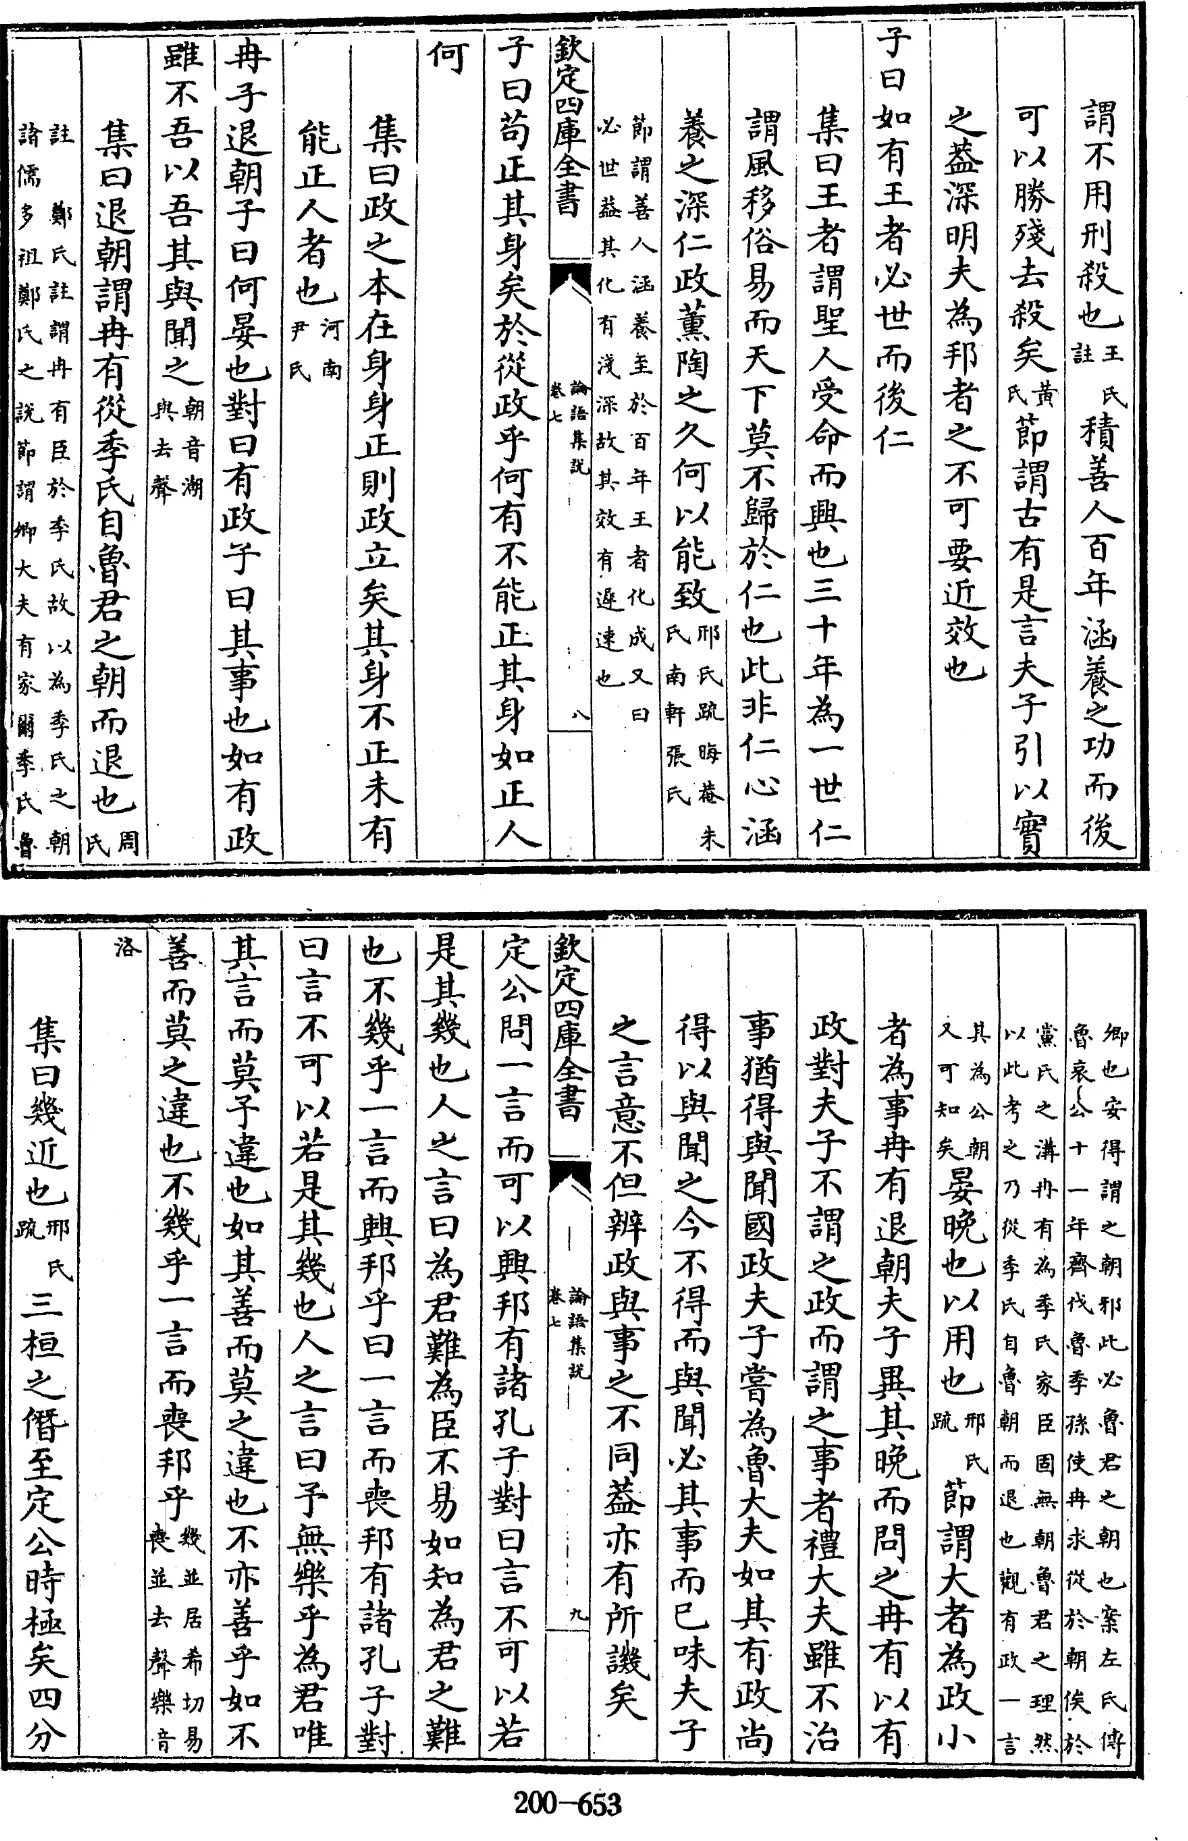 謂不用刑殺也王氏註積善人百年涵養之功而後
可以勝殘去殺矣黃氏節謂古有是言夫子引以實
之葢深明夫為邦者之不可要近效也
子曰如有王者必世而後仁
集曰王者謂聖人受命而興也三十年為一世仁
謂風移俗易而天下莫不歸於仁也此非仁心涵
養之深仁政薰陶之久何以能致邢氏疏晦菴朱氏南軒張氏
節謂善人涵養至於百年王者化成又曰
必世葢其化有淺深故其效有遲速也
欽定四庫全書
論語集說
卷七
八
子曰苟正其身矣於從政乎何有不能正其身如正人
何
集曰政之本在身身正則政立矣其身不正未有
能正人者也河南尹氏
冉子退朝子曰何晏也對曰有政子曰其事也如有政
雖不吾以吾其與聞之朝音潮與去聲
集曰退朝謂冉有從季氏自魯君之朝而退也周氏
註鄭氏註謂冉有臣於季氏故以為季氏之朝
諸儒多祖鄭氏之說節謂卿大夫有家爾季氏魯
卿也安得謂之朝邪此必魯君之朝也案左氏傳
魯哀公十一年齊伐魯季孫使冉求從於朝俟於
黨氏之溝冉有為季氏家臣固無朝魯君之理然
以此考之乃從季氏自魯朝而退也觀有政一言
其為公朝
又可知矣晏晚也以用也邢氏疏節謂大者為政小
者為事冉有退朝夫子異其晚而問之冉有以有
政對夫子不謂之政而謂之事者禮大夫雖不治
事猶得與聞國政夫子嘗為魯大夫如其有政尚
得以與聞之今不得而與聞必其事而已味夫子
之言意不但辨政與事之不同葢亦有所譏矣
欽定四庫全書
論語集說
卷七
九
定公問一言而可以興邦有諸孔子對曰言不可以若
是其幾也人之言曰為君難為臣不易如知為君之難
也不幾乎一言而興邦乎曰一言而喪邦有諸孔子對
曰言不可以若是其幾也人之言曰予無樂乎為君唯
其言而莫予違也如其善而莫之違也不亦善乎如不
善而莫之違也不幾乎一言而喪邦乎幾並居希切易喪並去聲樂音
洛
集曰幾近也邢氏疏三桓之僭至定公時極矣四分
200-653